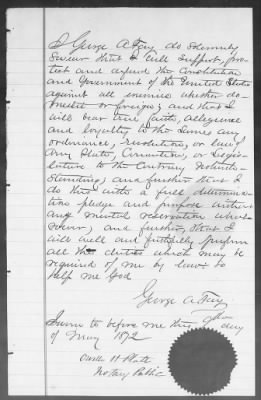 I George A. Fay do solemnly
swear that I will support, pro-
tect and defend the Constitution
and Government of the United States
against all enemies whether do-
mestic or foreign; and that I
will bear true faith, allegiance
and loyalty to the same, any
ordinance, resolution, or law of
any State, Convention, or Legis-
lature to the contrary notwith-
standing; and further that I
do this with a full determina-
tion pledge and purpose without
any mental reservation whats-
oever; and further, that I
will well and faithfully perform
all the duties which may be
required of me by law so
help me God
George A. Fay
Sworn to before me this day
of May 1872
Platt
Notary Public